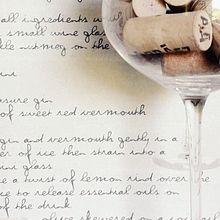 all ingredients
small wine glass
nutmeg on the
gin
of sweet red vermouth
gin and vermouth gently in a
of ice then strain into a
ini glass
a twist of lemon rind over the
to release essential oils on
of the drink
olive skewered on a